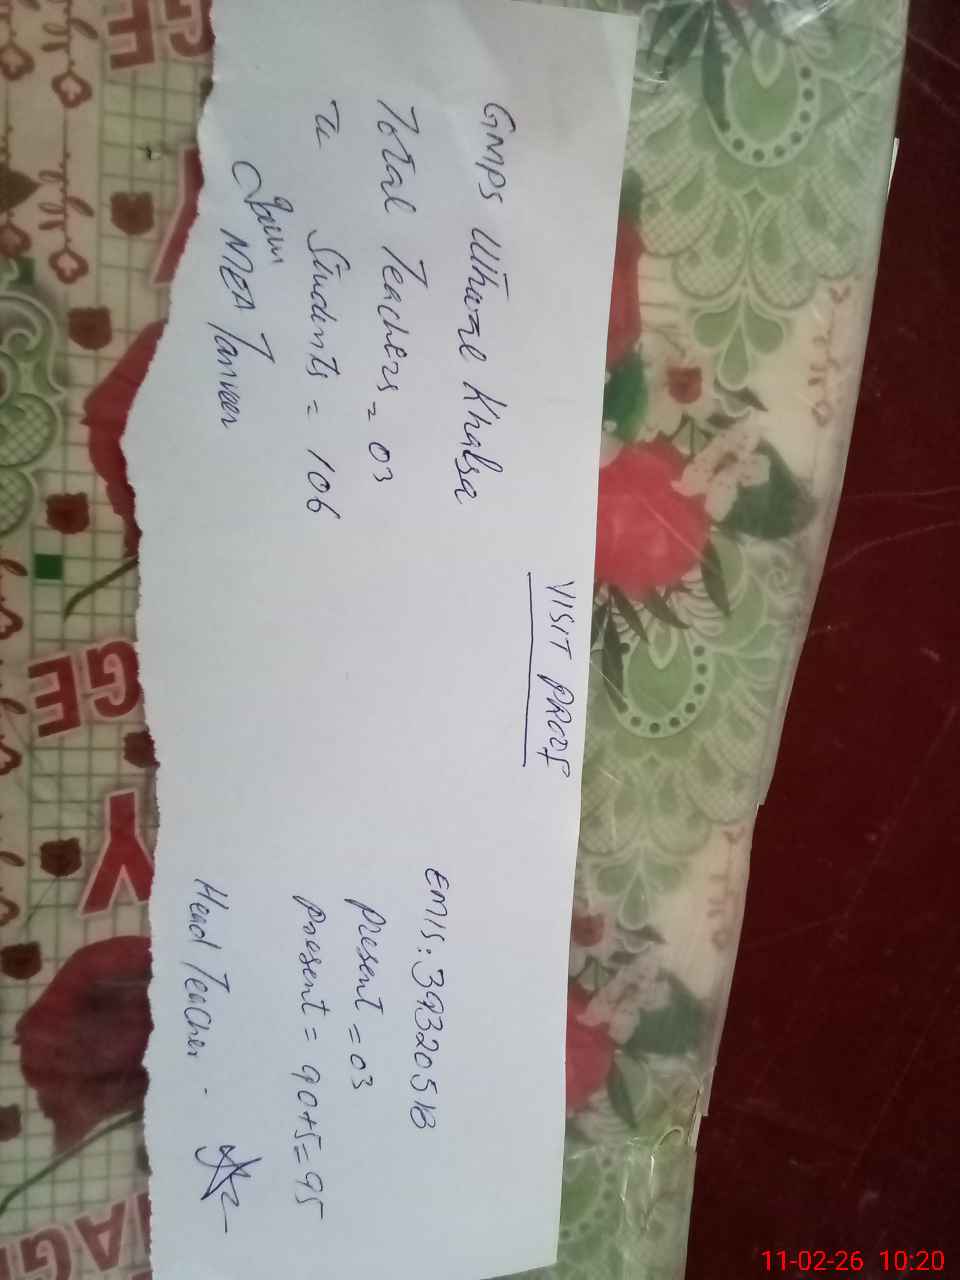 VISIT PROOF
GMPS Uthwal Khalsa EMIS: 39320518
Total Teachers = 03 Present = 03
Students = 106 Present = 90+5=95
MEA Tanveer Head Teacher
GE
Y
GE
Y
11-02-26 10:20